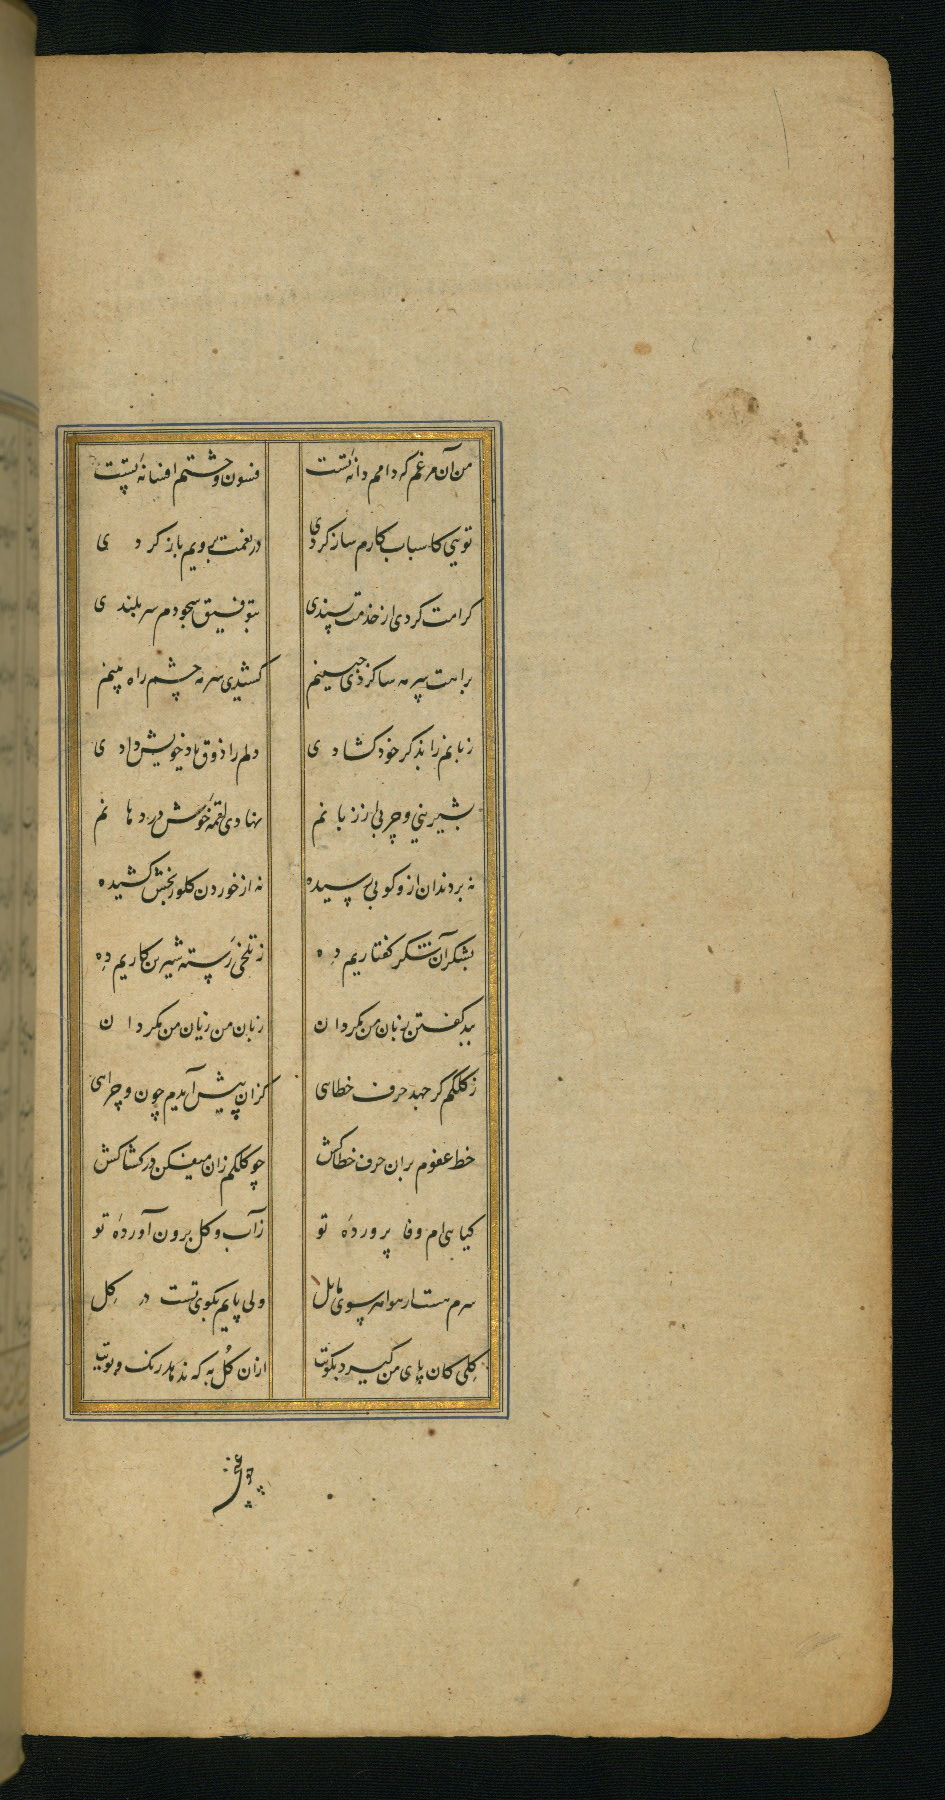 من آن مرغم که دامم دانهٔ تست فسون وحشتم افسانهٔ تست
تویی کاسباب کارم ساز کردی در نعمت برویم باز کردی
کرامت کردی از خدمت پسندی بتوفیق سجودم سربلندی
براهت سرمه سا کردی جبینم کشیدی سرمه چشم راه بینم
زبانم را بذکر خود کشادی دلم را ذوق یاد خویش دادی
بشیرینی و چربی از زبانم نهادی لقمهٔ خوش در دهانم
نه بر دندان ازو کوبی رسیده نه از خوردن کلو رنجش کشیده
بشکر آن شکر کفتاریم ده ز تلخی رسته شیرین کاریم ده
ببد کفتن زبان من مکردان زبان من زیان من مکردان
ز کلکم کر جهد حرف خطایی کزان پیش آیدم چون و چرایی
خط عفوم بران حرف خطا کش چو کلکم زان میفکن در کشاکش
کیاهی‌ام وفا پروردهٔ تو ز آب و کل برون آوردهٔ تو
سرم هست از هوا هر سوی مایل ولی پایم بکوی تست در کل
کلی کان پای من کیرد بکویت ازان کل به که ندهد رنک و بویت